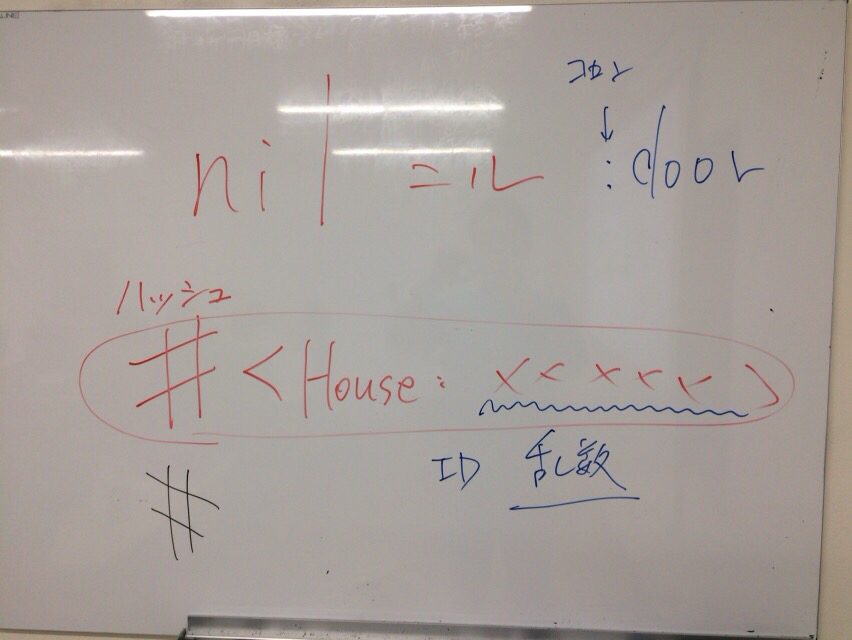 コロン
↓
nil ニル :door
ハッシュ
#<House: xxxxx>
ID 乱数
#